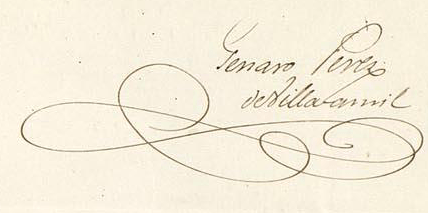 Genaro Perez
de Villa-amil